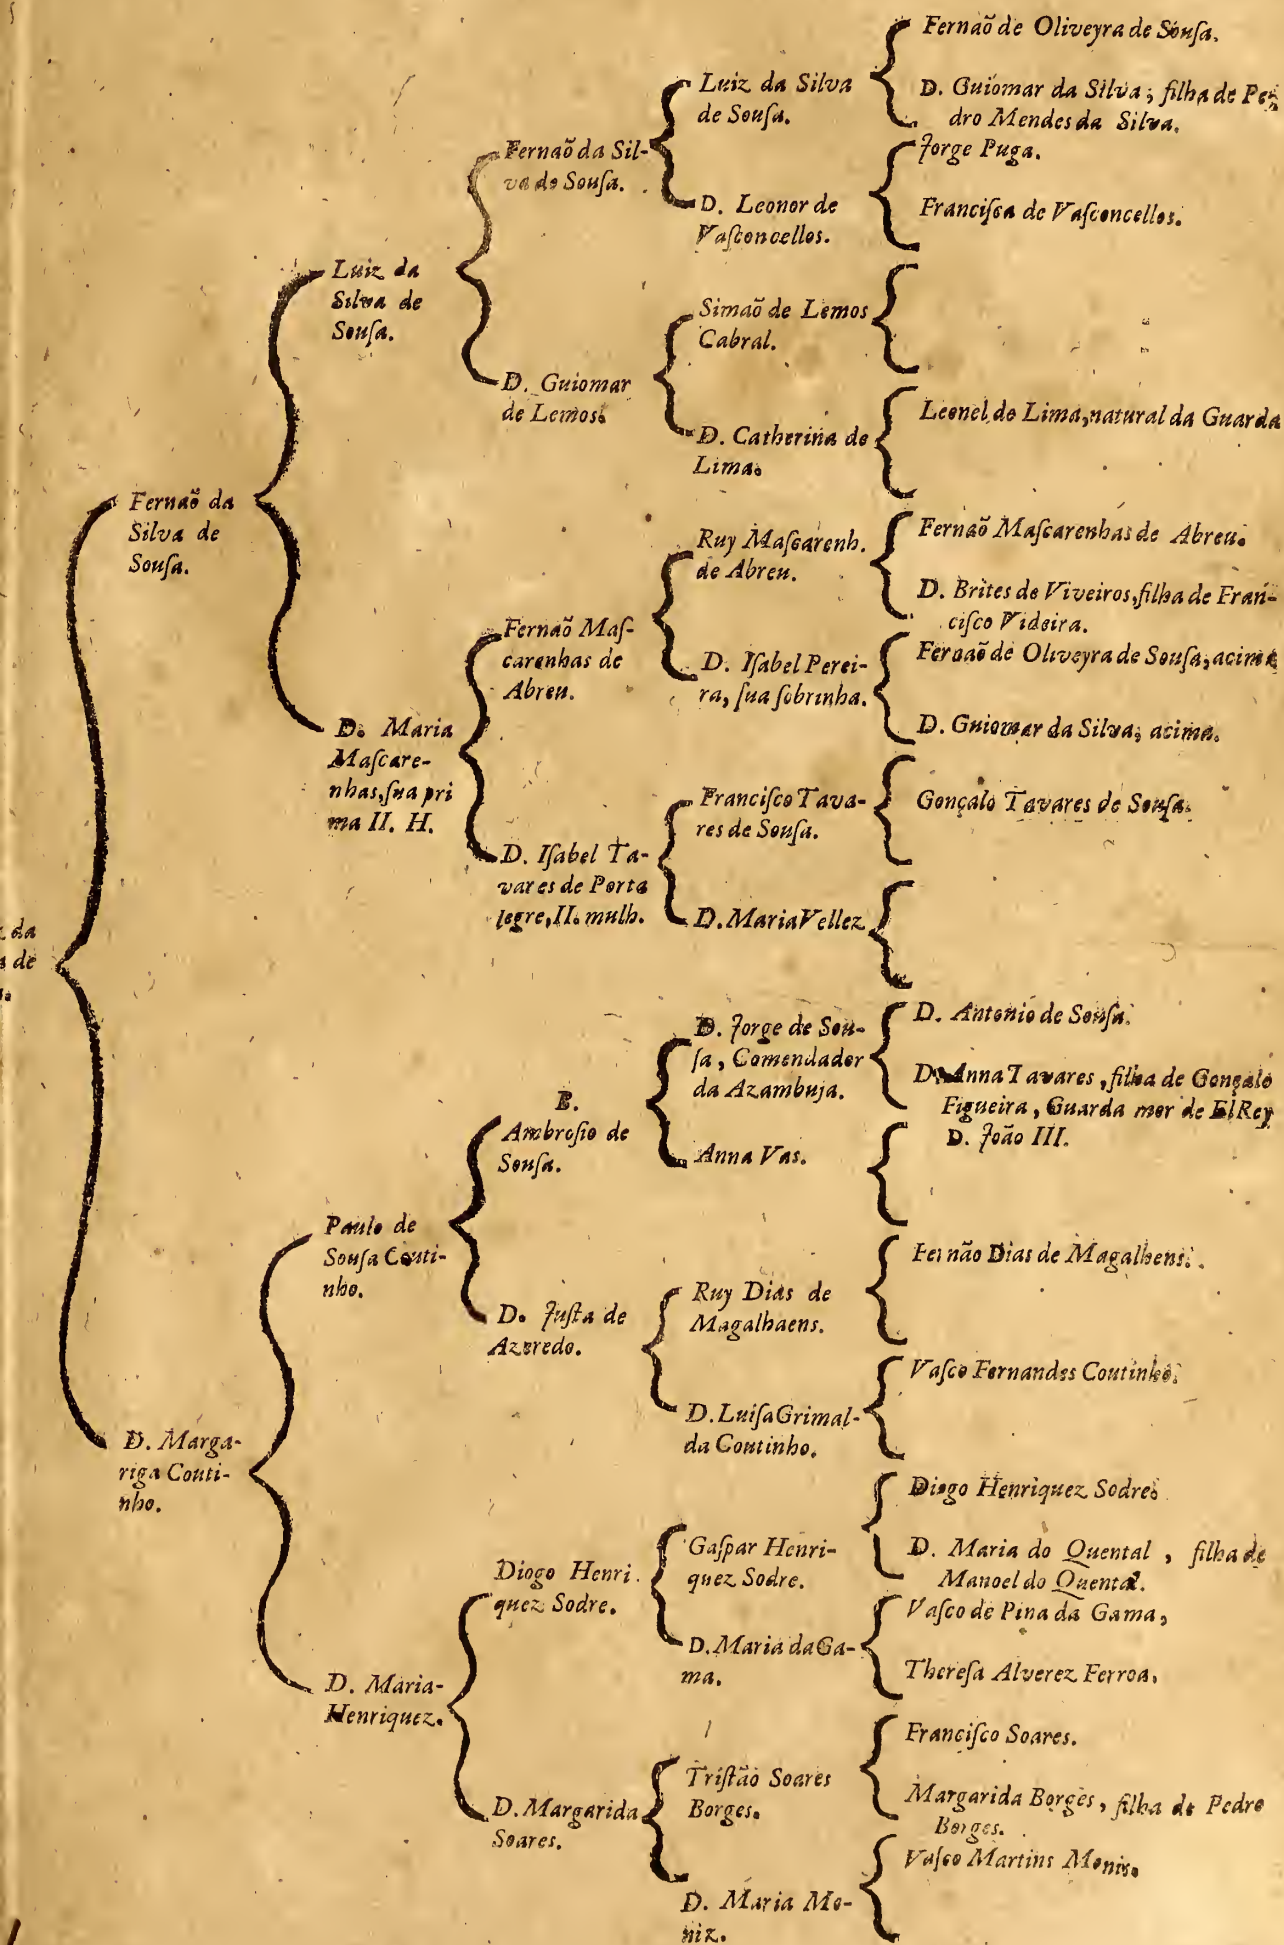 da
de
Fernaõ da
Silva de
Souſa.
D. Marga-
riga Couti-
nho.
Luiz da
Silva de
Souſa.
D. Maria
Maſcare-
nhas, ſua pri
ma II. H.
Paulo de
Souſa Couti-
nho.
D. Maria-
Henriquez.
Fernaõ da Sil-
va de Souſa.
D. Guiomar
de Lemos.
Fernaõ Maſ-
carenhas de
Abreu.
D. Iſabel Ta-
vares de Porta
legre, II. mulh.
B.
Ambroſio de
Souſa.
D. Juſta de
Azeredo.
Diogo Henri
quez Sodre.
D. Margarida
Soares.
Luiz da Silva
de Souſa.
D. Leonor de
Vaſconcellos.
Simaõ de Lemos
Cabral.
D. Catherina de
Lima.
Ruy Maſcarenh.
de Abreu.
D. Iſabel Perei-
ra, ſua ſobrinha.
Franciſco Tava-
res de Souſa.
D. Maria Vellez
D. Jorge de Sou-
ſa, Comendador
da Azambuja.
Anna Vas.
Ruy Dias de
Magalhaens.
D. Luiſa Grimal-
da Coutinho.
Gaſpar Henri-
quez Sodre.
D. Maria da Ga-
ma.
Triſtão Soares
Borges.
D. Maria Mo-
niz.
Fernaõ de Oliveyra de Souſa.
D. Guiomar da Silva, filha de Pe-
dro Mendes da Silva.
Jorge Puga.
Franciſca de Vaſconcellos.
Leonel de Lima, natural da Guarda
Fernaõ Maſcarenhas de Abreu.
D. Brites de Viveiros, filha de Fran-
ciſco Videira.
Fernaõ de Oliveyra de Souſa, acima
D. Guiomar da Silva, acima.
Gonçalo Tavares de Souſa.
D. Antonio de Souſa.
D. Anna Tavares, filha de Gonçalo
Figueira, Guarda mor de ElRey
D. João III.
Fernão Dias de Magalhens.
Vaſco Fernandes Coutinho.
Diogo Henriquez Sodre.
D. Maria do Quental, filha de
Manoel do Quental.
Vaſco de Pina da Gama,
Thereſa Alverez Ferroa.
Franciſco Soares.
Margarida Borges, filha de Pedro
Borges.
Vaſco Martins Monis.